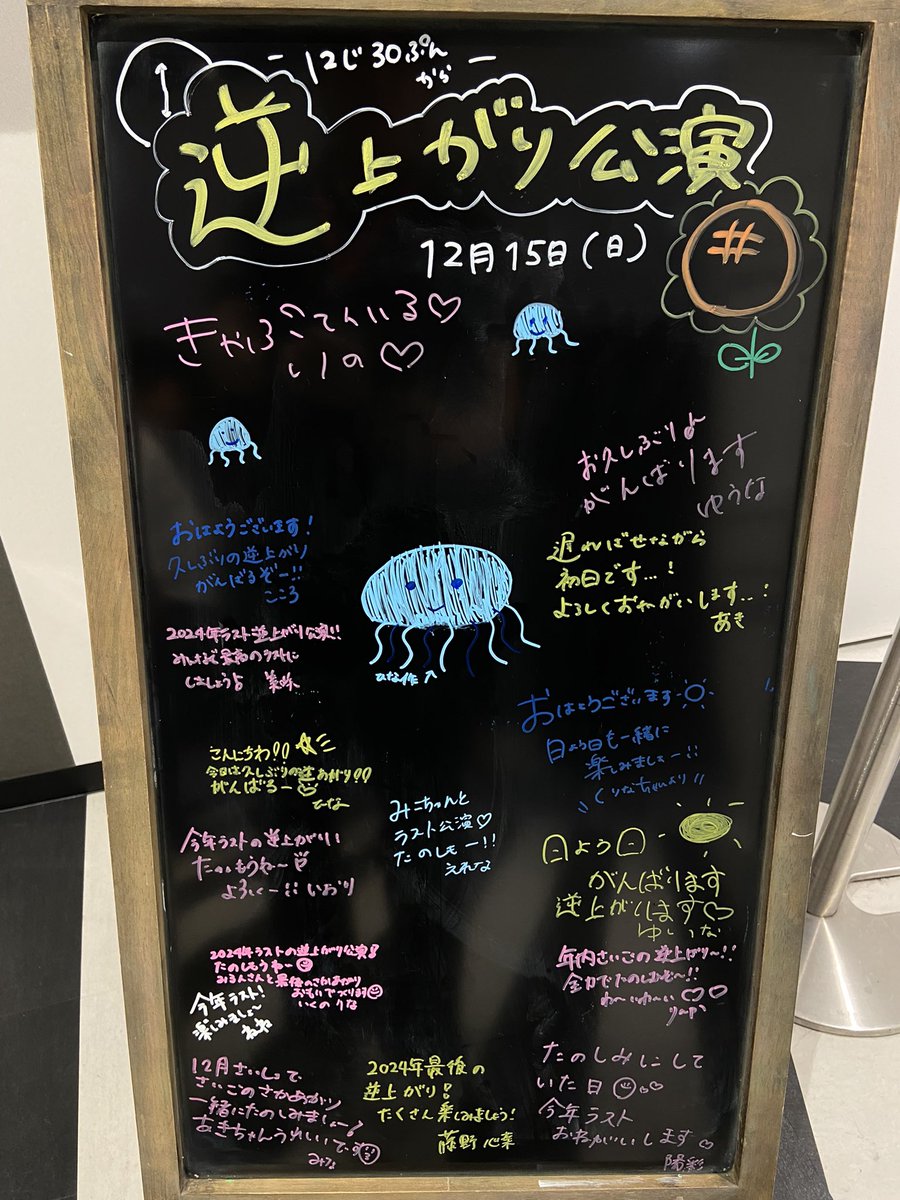 12じ30ぷん
から
逆上がり公演
12月15日(日)
#
お久しぶり♪
がんばります
ゆうな
おはようございます!
久しぶりの逆上がり
がんばるぞー!!
こころ
遅ればせながら
初日です…!
よろしくおねがいします…!
あき
2024年ラスト逆上がり公演!!
最高のラストに
しましょう
ひな作
おはようございます
日よう日も一緒に
楽しみましょー!!
こんにちわ!!
今日は久しぶりの逆あがり!!
がんばろー
ひな
みこちゃんと
ラスト公演♡
たのしもー!!
えれな
今年ラストの逆上がり!!
たのしもうねー
よろしくー!! いおり
日よう日
がんばります
逆上がりします♡
ゆいな
2024年ラストの逆上がり公演!
たのしもうねー
みるんさんと最後のさかあがり
おもいでつくります
いくの りな
今年ラスト!
楽しみましょ〜
年内さいごの逆上がり〜!!
全力でたのしむぞ〜!!
わ〜いわ〜い♡♡
12月さいしょで
さいごのさかあがり
一緒にたのしみましょー!
あきちゃんうれしいです
2024年最後の
逆上がり!
たくさん楽しみましょう!
藤野 心葉
たのしみにして
いた日
今年ラスト
おねがいします♡
陽彩